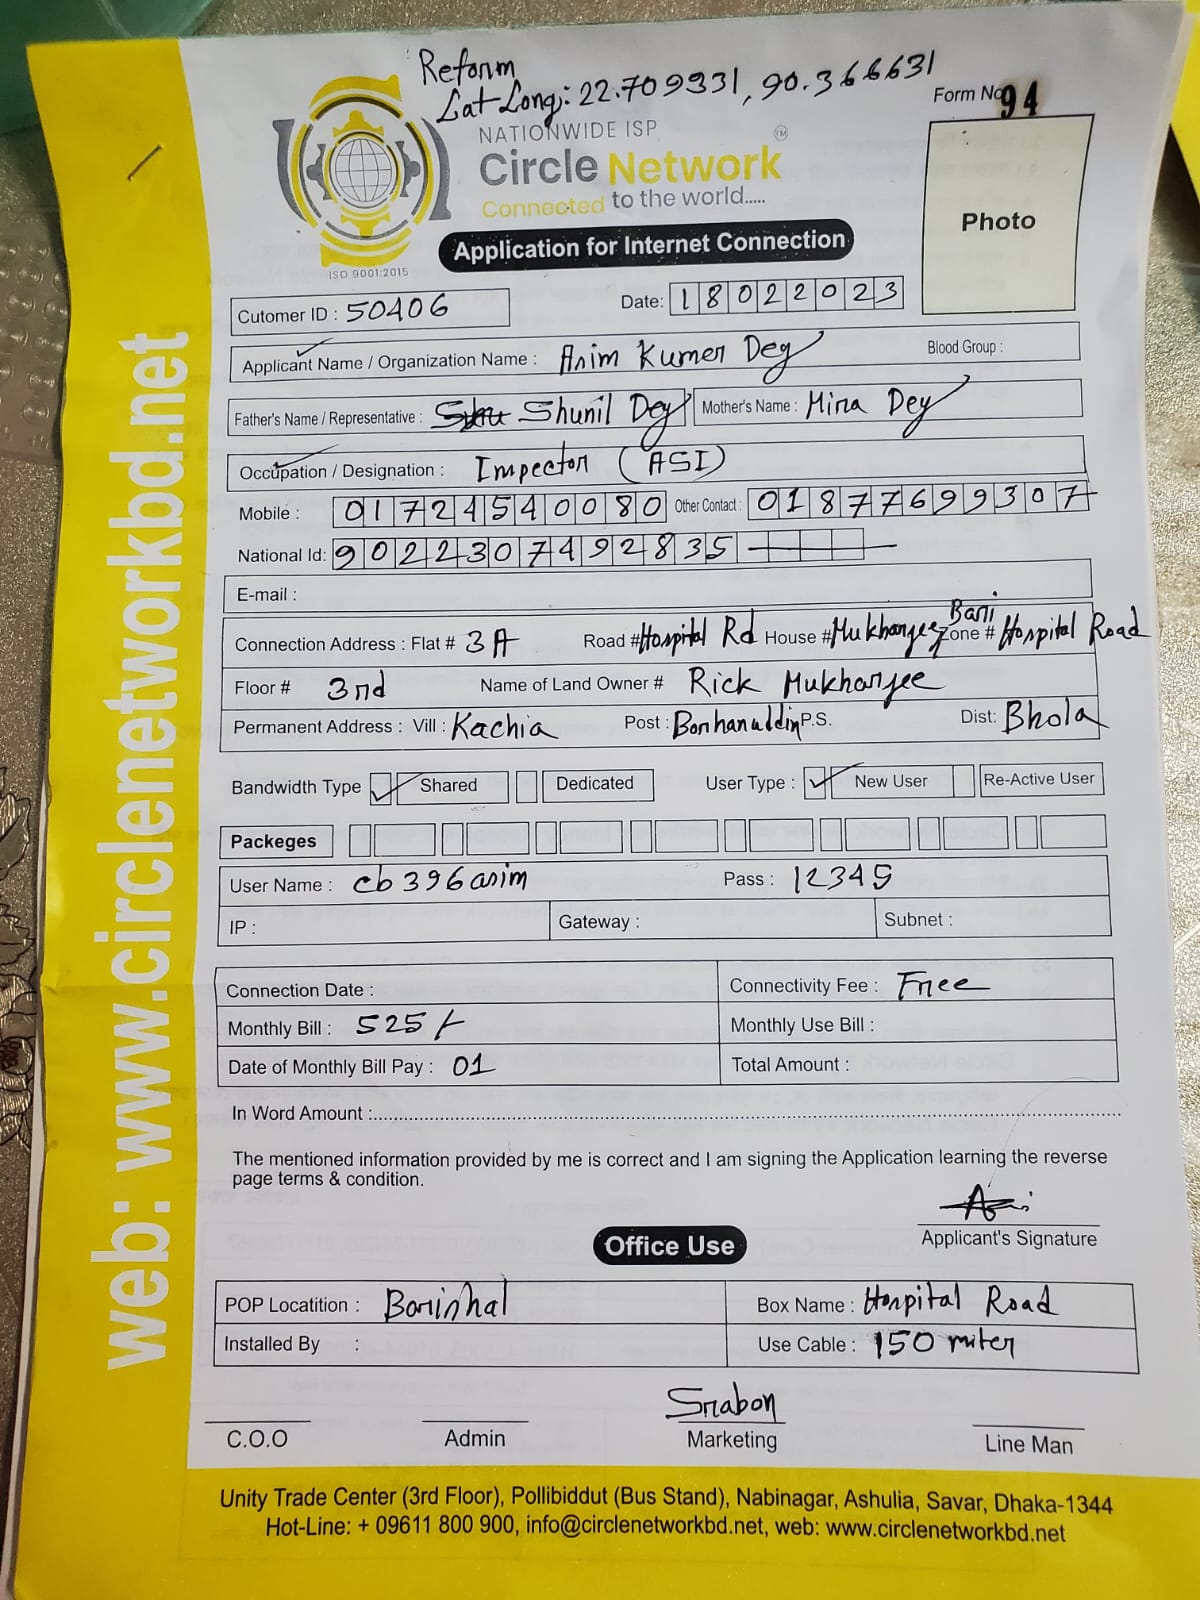 Reform
Lat-Long: 22.709331, 90.366631
Form No 94
NATIONWIDE ISP
Circle Network TM
Connected to the world.....
ISO 9001:2015
Photo
Application for Internet Connection
Cutomer ID : 50406 Date: 18022023
Applicant Name / Organization Name : Asim Kumer Dey Blood Group :
Father's Name / Representative : Shunil Dey Mother's Name : Mina Dey
Occupation / Designation : Impector (ASI)
Mobile : 01724540080 Other Contact : 01877699307
National Id: 9022307492835
E-mail :
Connection Address : Flat # 3A Road # Hospital Rd House # Mukharjee Bari Zone # Hospital Road
Floor # 3rd Name of Land Owner # Rick Mukharjee
Permanent Address : Vill : Kachia Post : Borhanuddin P.S. Dist: Bhola
Bandwidth Type Shared Dedicated User Type : New User Re-Active User
Packeges
User Name : cb396asim Pass : 12345
IP : Gateway : Subnet :
Connection Date : Connectivity Fee : Free
Monthly Bill : 525/- Monthly Use Bill :
Date of Monthly Bill Pay : 01 Total Amount :
In Word Amount :
The mentioned information provided by me is correct and I am signing the Application learning the reverse
page terms & condition.
Applicant's Signature
Office Use
POP Locatition : Barishal Box Name : Hospital Road
Installed By : Use Cable : 150 miter
Srabon
C.O.O Admin Marketing Line Man
Unity Trade Center (3rd Floor), Pollibiddut (Bus Stand), Nabinagar, Ashulia, Savar, Dhaka-1344
Hot-Line: + 09611 800 900, info@circlenetworkbd.net, web: www.circlenetworkbd.net
web: www.circlenetworkbd.net